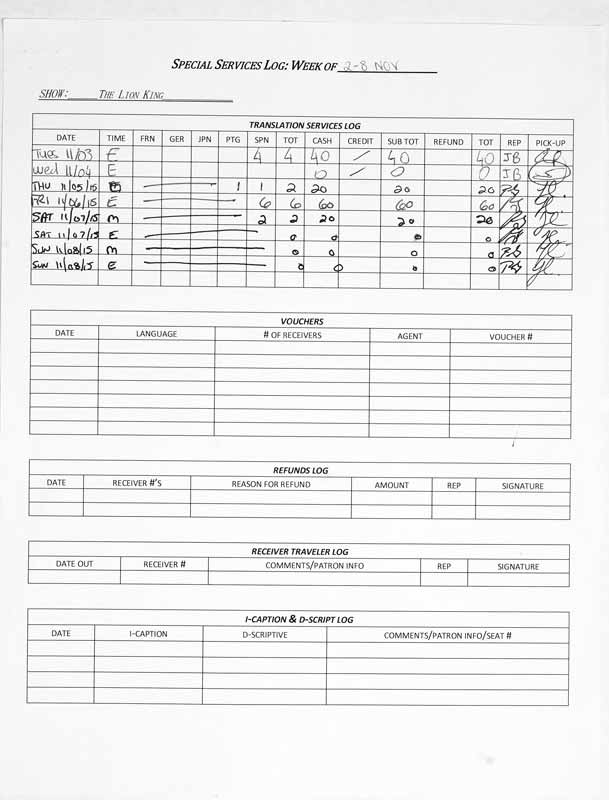 SPECIAL SERVICES LOG: WEEK OF 2-8 NOV
SHOW: THE LION KING
TRANSLATION SERVICES LOG
DATE TIME FRN GER JPN PTG SPN TOT CASH CREDIT SUB TOT REFUND TOT REP PICK-UP
Tues 11/03 E 4 4 40 / 40 40 JB
Wed 11/04 E 0 / 0 0 JB
THU 11/05/15 E 1 1 2 20 20 20
FRI 11/06/15 E 6 6 60 60 60
SAT 11/07/15 M 2 2 20 20 20
SAT 11/07/15 E 0 0 0 0
SUN 11/08/15 M 0 0 0 0
SUN 11/08/15 E 0 0 0 0
VOUCHERS
DATE LANGUAGE # OF RECEIVERS AGENT VOUCHER #
REFUNDS LOG
DATE RECEIVER #'S REASON FOR REFUND AMOUNT REP SIGNATURE
RECEIVER TRAVELER LOG
DATE OUT RECEIVER # COMMENTS/PATRON INFO REP SIGNATURE
I-CAPTION & D-SCRIPT LOG
DATE I-CAPTION D-SCRIPTIVE COMMENTS/PATRON INFO/SEAT #